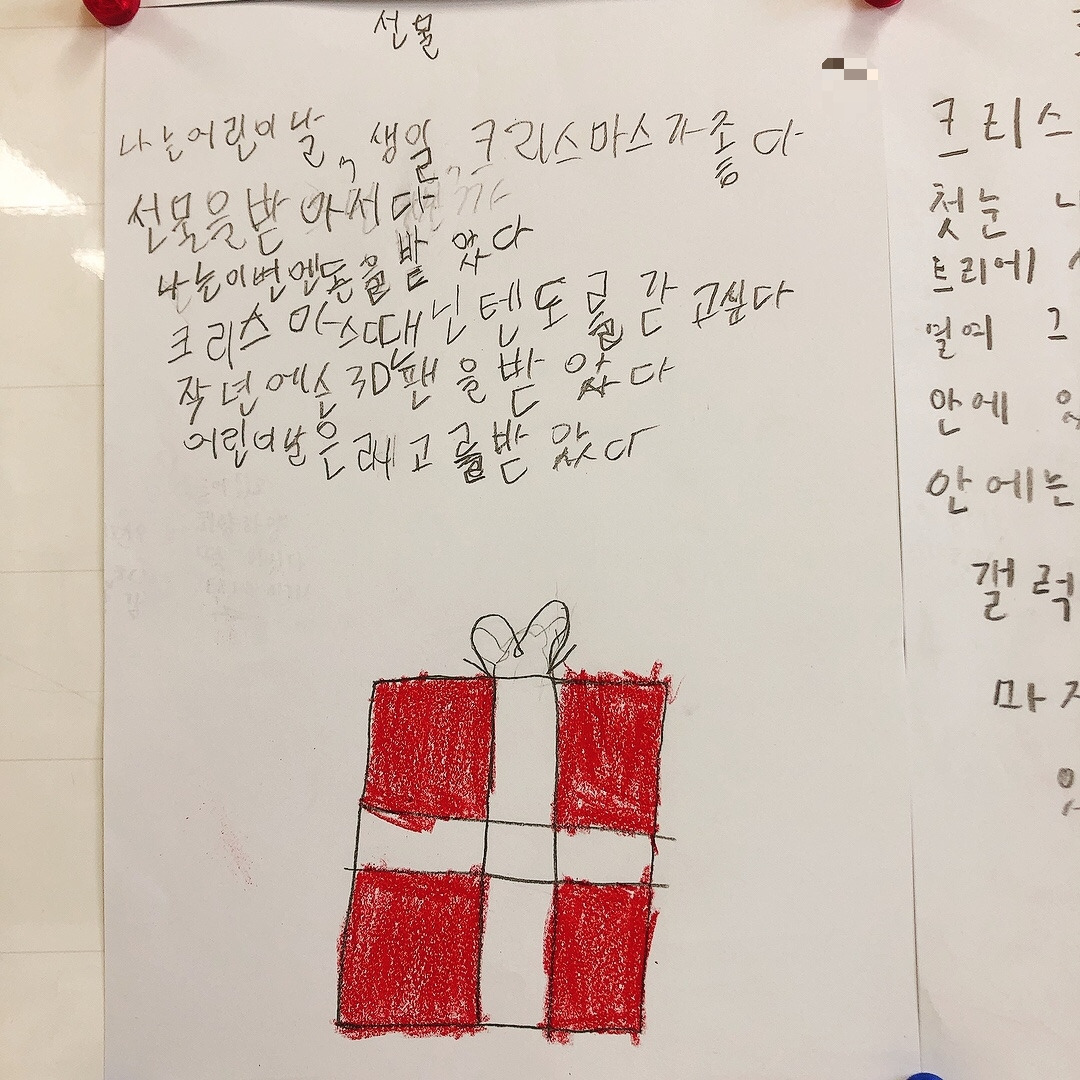 선물
나는어린이날, 생일, 크리스마스가좋다
선물을받아서다
나는이번엔돈을받았다
크리스마스때닌텐도를갇고싶다
작년에슨3D팬을받았다
어린이날은레고를받았다
크리스
첫눈
트리에
열여 그
안에
안에는
갤럭
마지